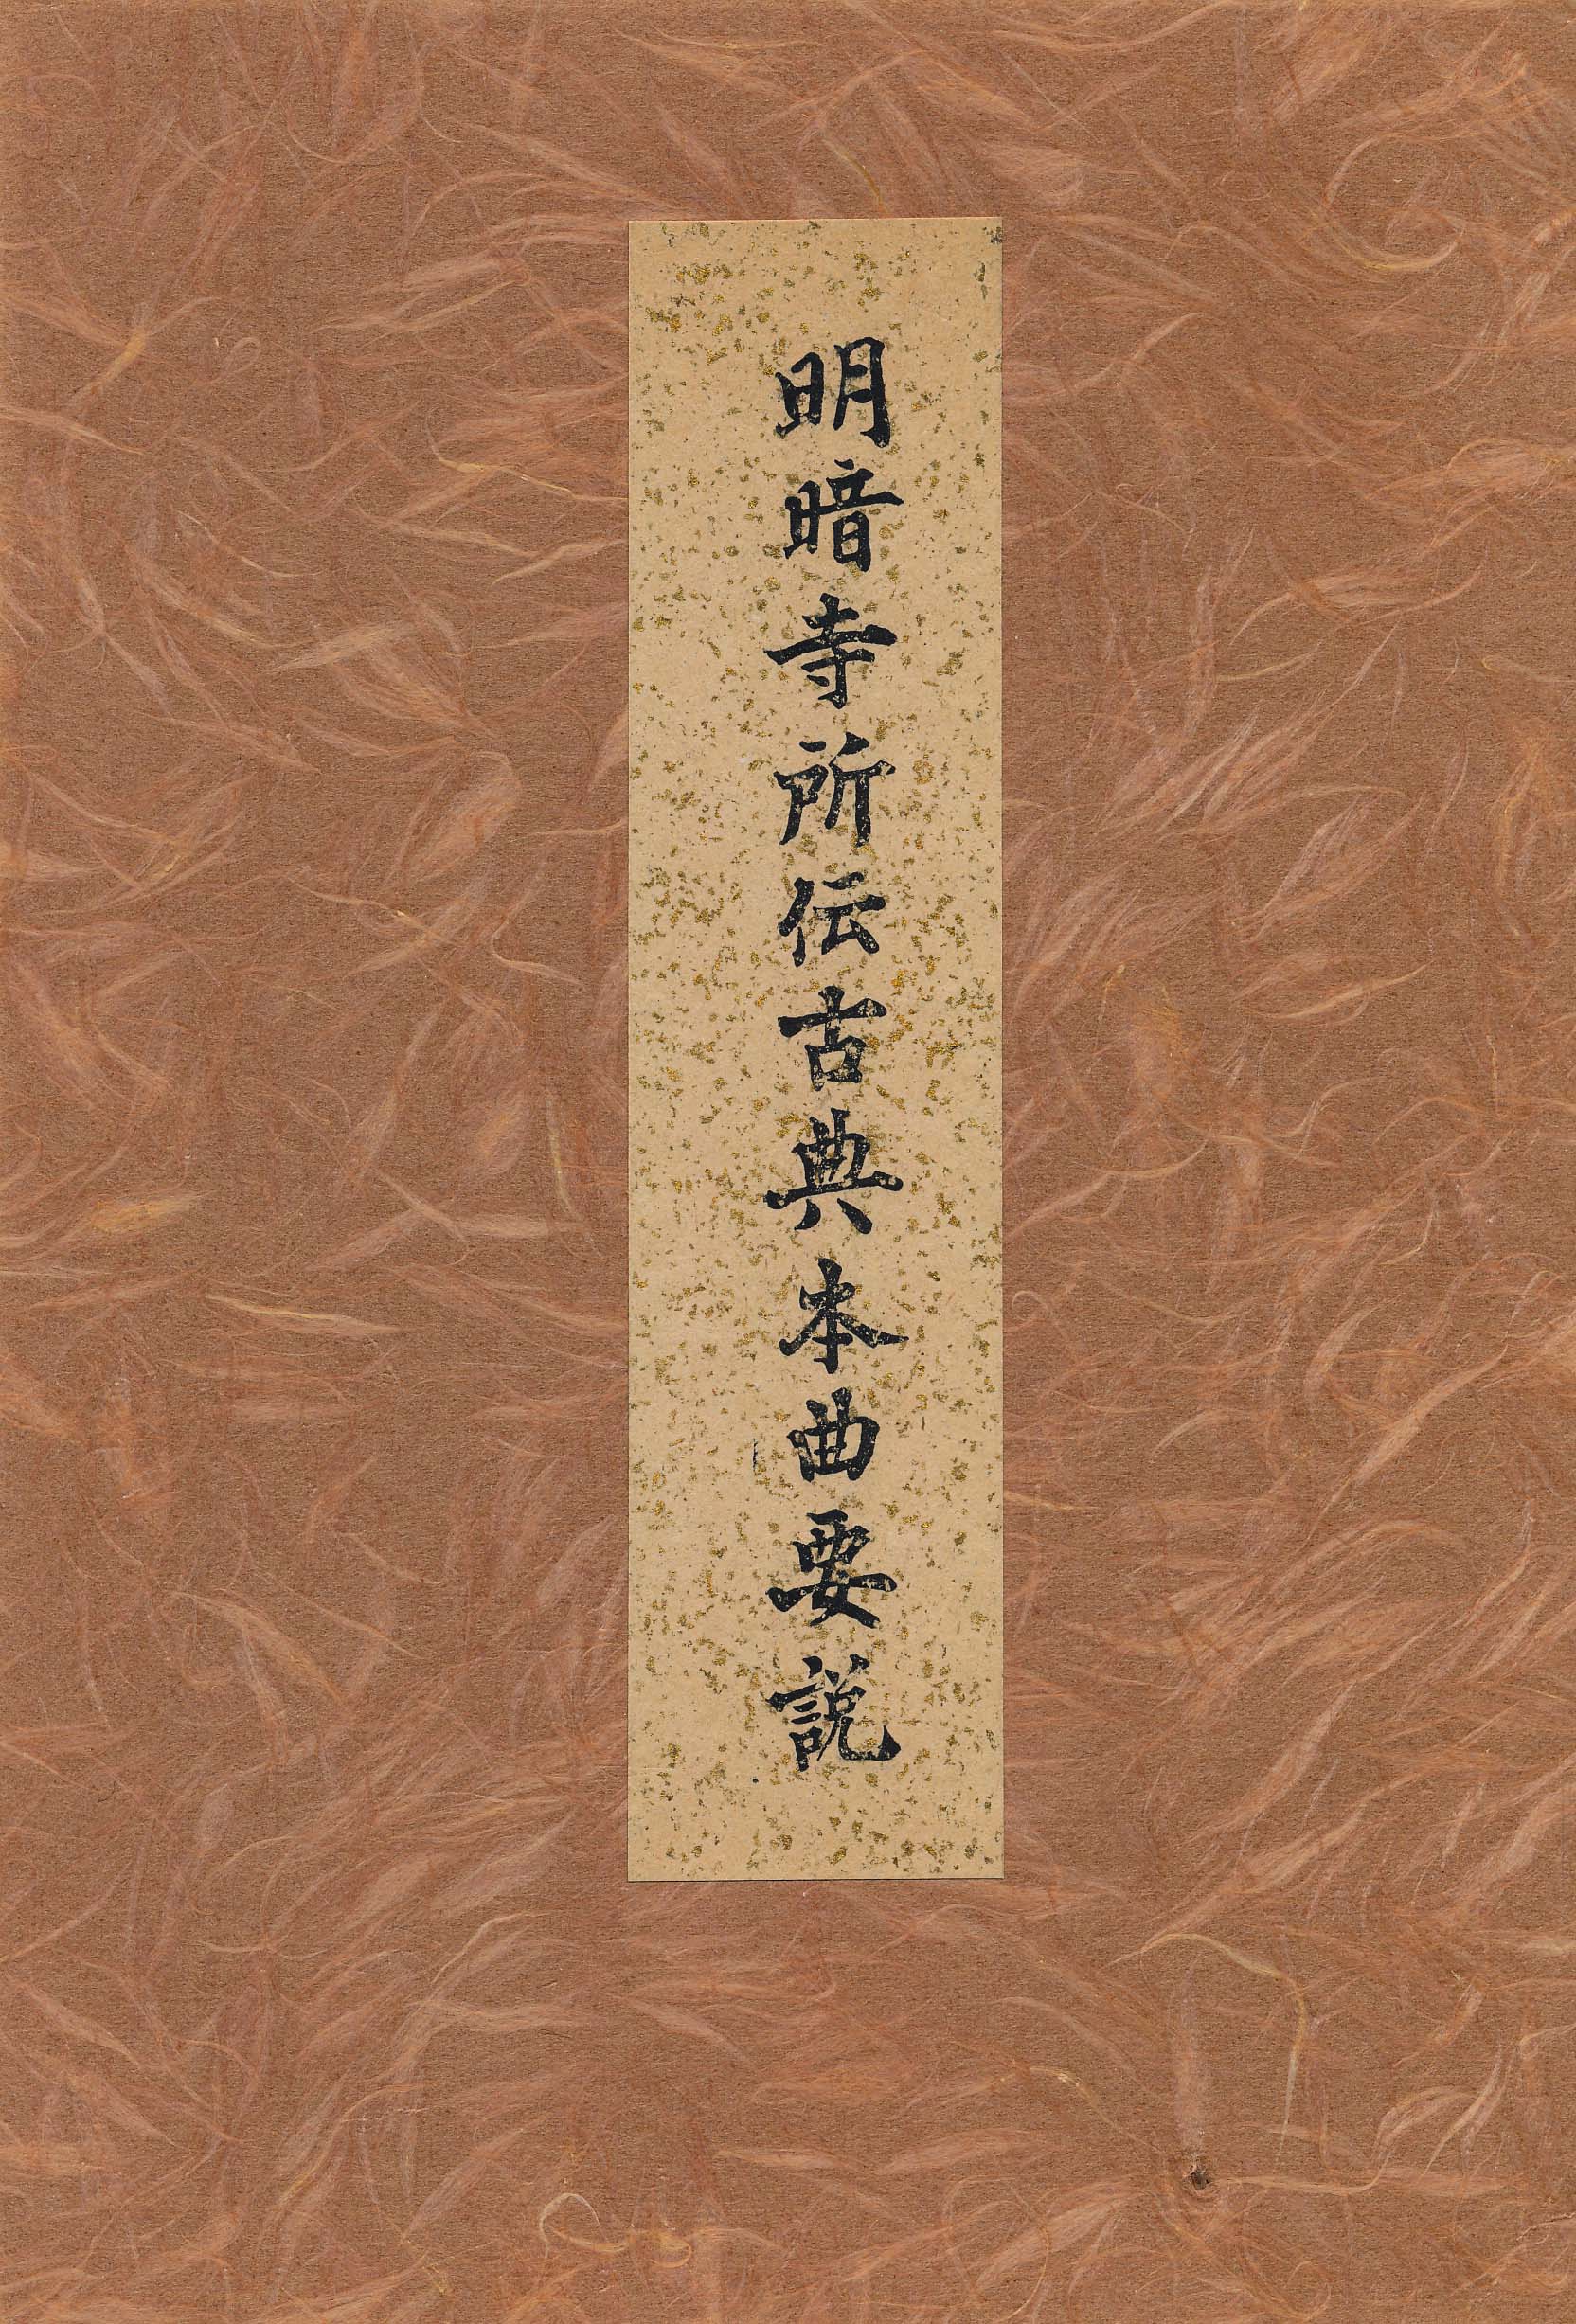 明暗寺所伝古典本曲要説